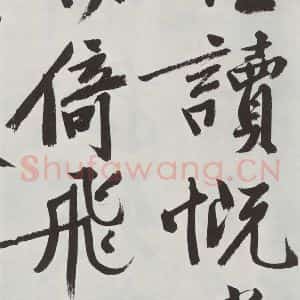 讀慨
倚飛
Shufawang.CN